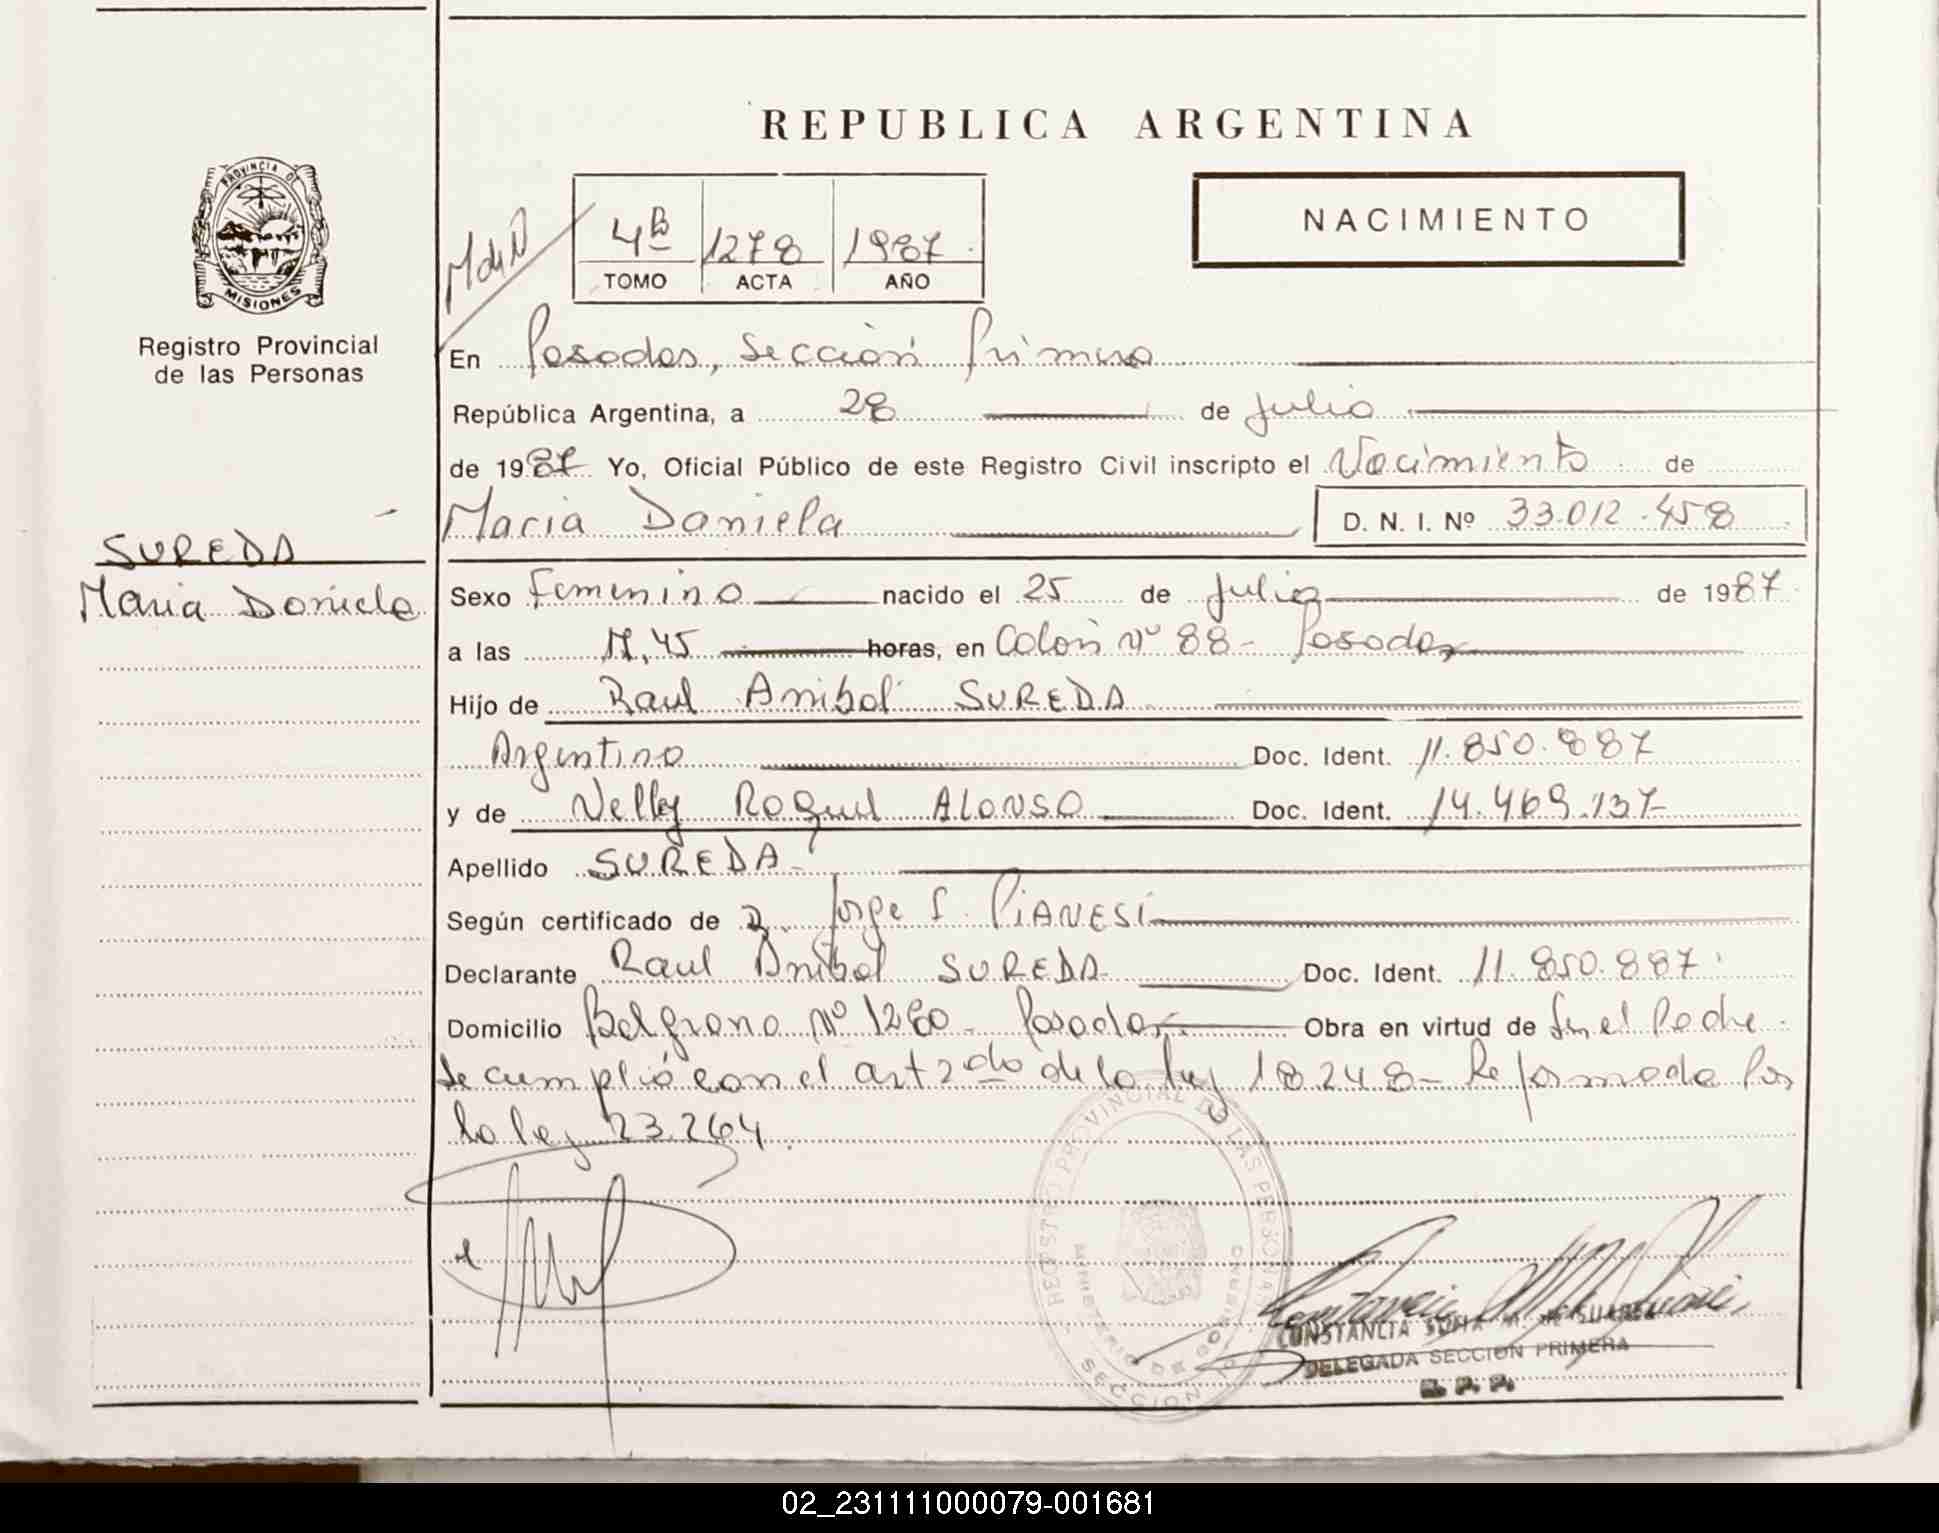 REPUBLICA ARGENTINA
PROVINCIA DE
MISIONES
Registro Provincial
de las Personas
NACIMIENTO
4B 1278 1987
TOMO ACTA AÑO
En Posadas, Sección Primera
República Argentina, a 28 de Julio
de 1987 Yo, Oficial Público de este Registro Civil inscripto el Nacimiento de
Maria Daniela D. N. I. Nº 33.012.458
SUREDA
Maria Daniela
Sexo Femenino nacido el 25 de Julio de 1987
a las 45 horas, en Colón Nº 88 - Posadas
Hijo de Raul Anibal SUREDA
Argentino Doc. Ident. 11.850.887
y de Nelly Raquel ALONSO Doc. Ident. 14.469.137
Apellido SUREDA
Según certificado de D. Jorge S. PIANESI
Declarante Raul Anibal SUREDA Doc. Ident. 11.850.887
Domicilio Belgrano Nº 1280 - Posadas Obra en virtud de Ser el Padre.
Se cumplió con el art 2do de la Ley 18248 - Reformada Por
la ley 23.264.
REGISTRO PROVINCIAL DE LAS PERSONAS
MINISTERIO DE GOBIERNO
SECCION
CONSTANCIA SOFIA M. de SUAREZ
DELEGADA SECCION PRIMERA
R. P. P.
02_231111000079-001681